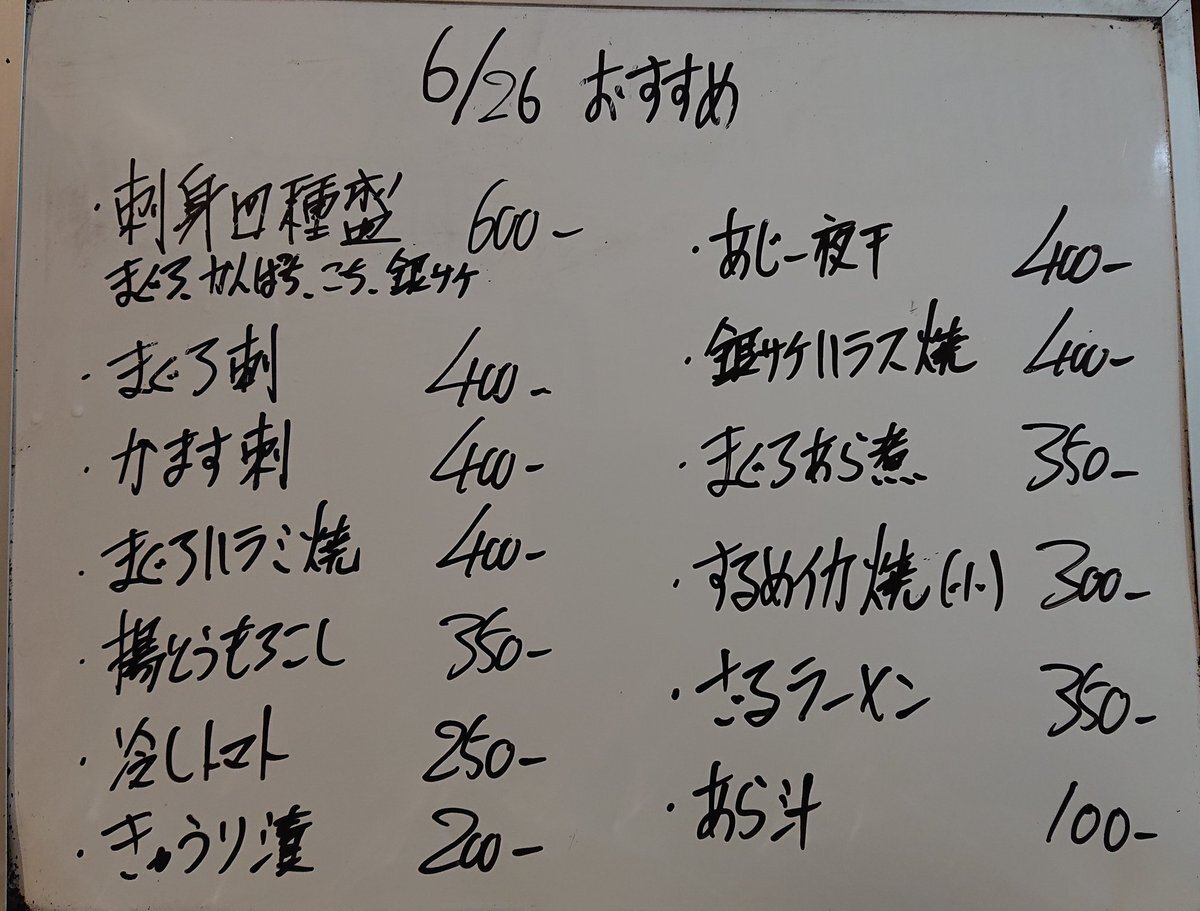 6/26 おすすめ
・刺身四種盛 600-
まぐろ、かんぱち、こち、銀サケ
・まぐろ刺 400-
・かます刺 400-
・まぐろハラミ焼 400-
・揚とうもろこし 350-
・冷しトマト 250-
・きゅうり漬 200-
・あじ一夜干 400-
・銀サケハラス焼 400-
・まぐろあら煮 350-
・するめイカ焼(小) 300-
・ざるラーメン 350-
・あら汁 100-